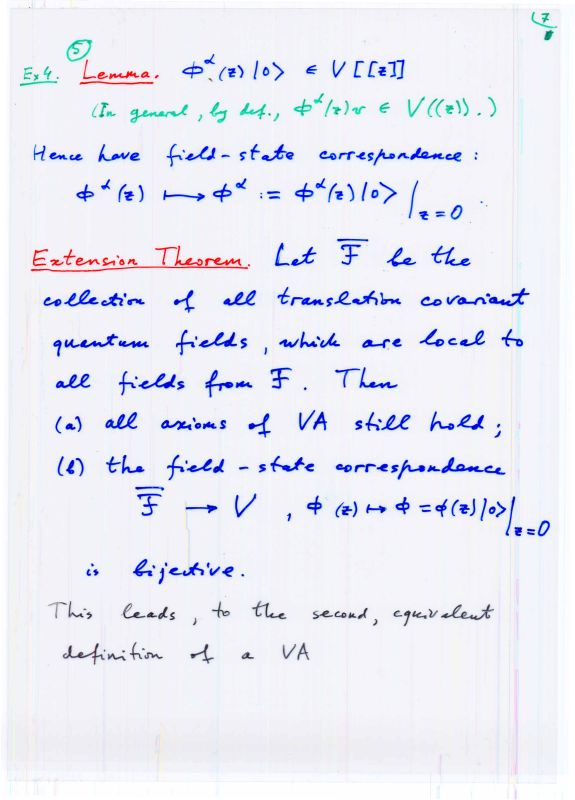 7
5
Ex4. Lemma. ϕ^α(z)|0> ∈ V[[z]]
(In general, by def., ϕ^α(z)v ∈ V((z)).)
Hence have field-state correspondence:
ϕ^α(z) ⟼ ϕ^α := ϕ^α(z)|0>|_{z=0}.
Extension Theorem. Let F̅ be the
collection of all translation covariant
quantum fields, which are local to
all fields from F. Then
(a) all axioms of VA still hold;
(b) the field-state correspondence
F̅ → V, ϕ(z) ↦ ϕ = ϕ(z)|0>|_{z=0}
is bijective.
This leads, to the second, equivalent
definition of a VA